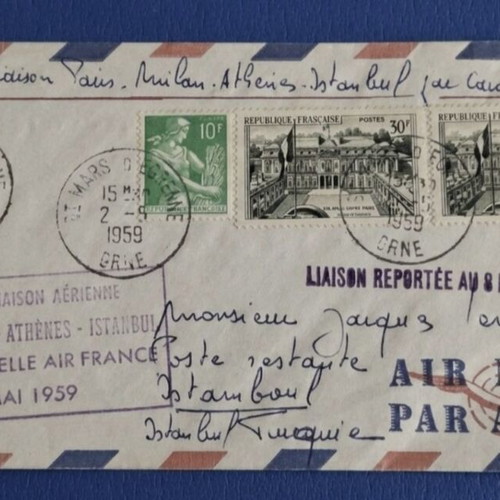 liaison Paris - Milan - Athènes - Istanbul par Cara
POSTES
10F
REPUBLIQUE FRANÇAISE
REPUBLIQUE FRANÇAISE
POSTES 30F
REPUBLIQUE
ST MARS D'EGRENNE
15H30
2 -5
1959
ORNE
1959
ORNE
LIAISON REPORTÉE AU 8
LIAISON AÉRIENNE
ATHÈNES - ISTANBUL
ELLE AIR FRANCE
MAI 1959
Monsieur Jacques
Poste restante
Istamboul
Istanbul Turquie
AIR
PAR A